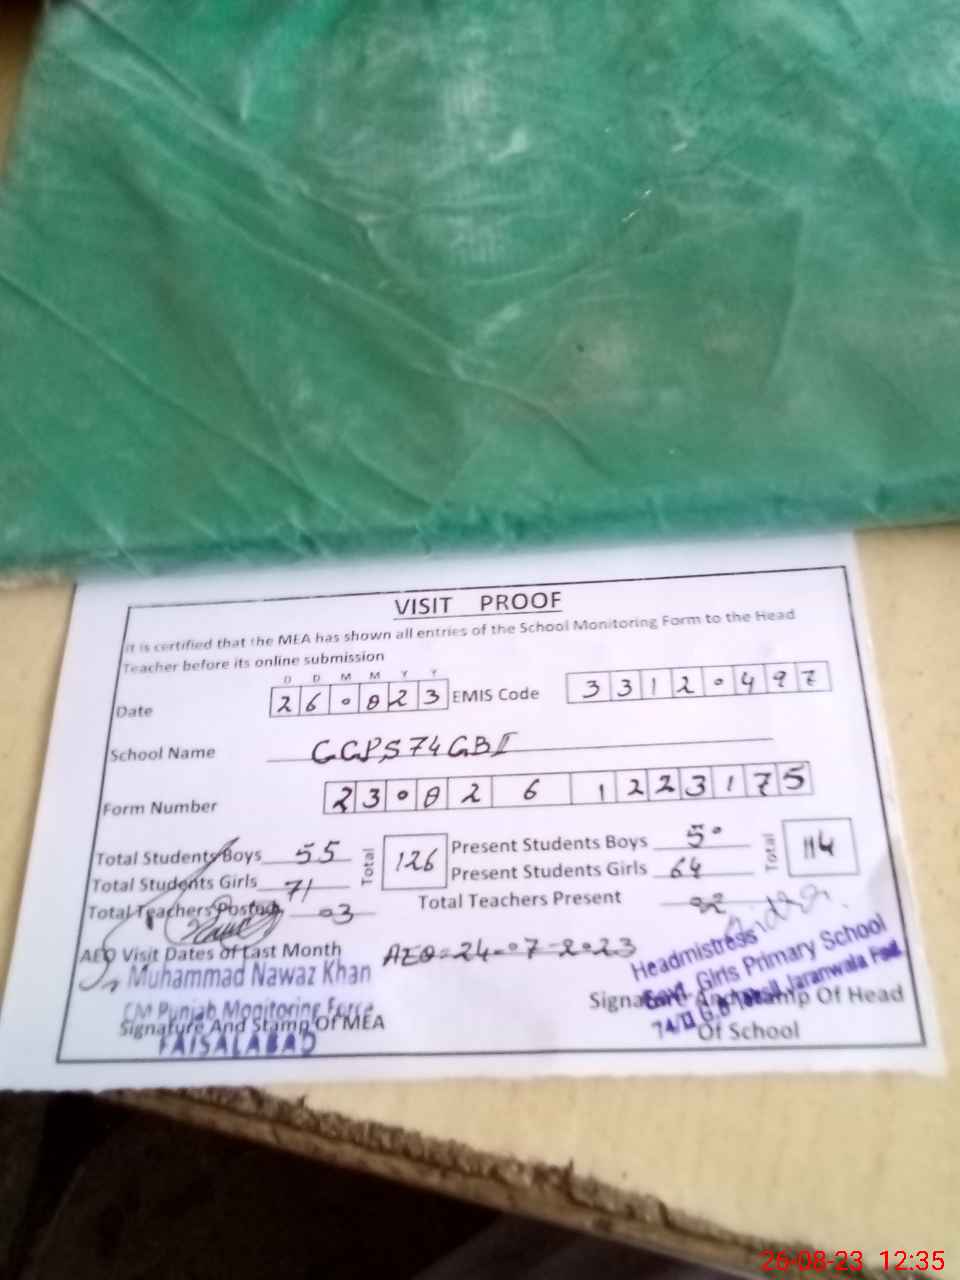 VISIT PROOF
It is certified that the MEA has shown all entries of the School Monitoring Form to the Head
Teacher before its online submission
D D M M Y Y
Date 26 08 23 EMIS Code 33120497
School Name GGPS 74 GB II
Form Number 2308261223175
Total Students Boys 55 Total 126 Present Students Boys 50 Total 114
Total Students Girls 71 Present Students Girls 64
Total Teachers Posted 03 Total Teachers Present 02
AEO Visit Dates of Last Month AEO=24-07-2023
Muhammad Nawaz Khan
CM Punjab Monitoring Force
Signature And Stamp Of MEA
FAISALABAD
Headmistress
Govt. Girls Primary School
74/II G.B Tehsil Jaranwala
Signature And Stamp Of Head
Of School
26-08-23 12:35